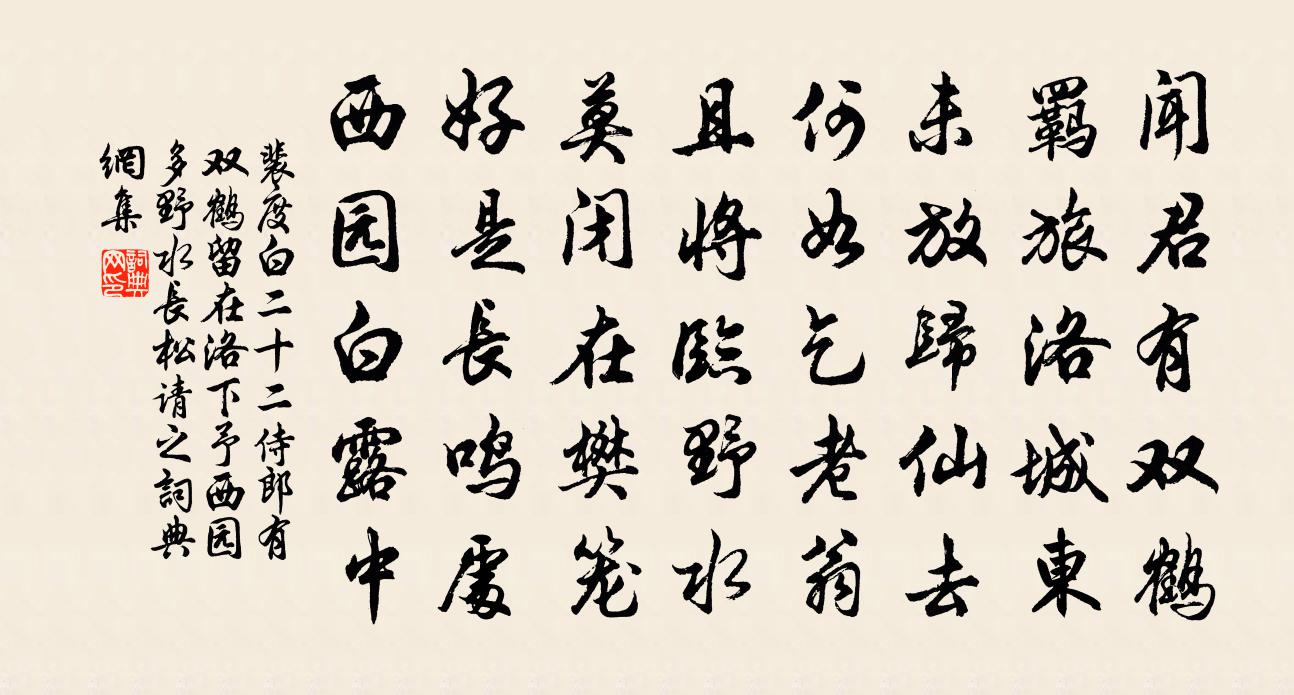 闻君有双鹤
羁旅洛城東
未放歸仙去
何如乞老翁
且将臨野水
莫闭在樊笼
好是長鸣處
西园白露中
裴度白二十二侍郎有
双鹤留在洛下予西园
多野水長松请之詞典
網集
詞典网印